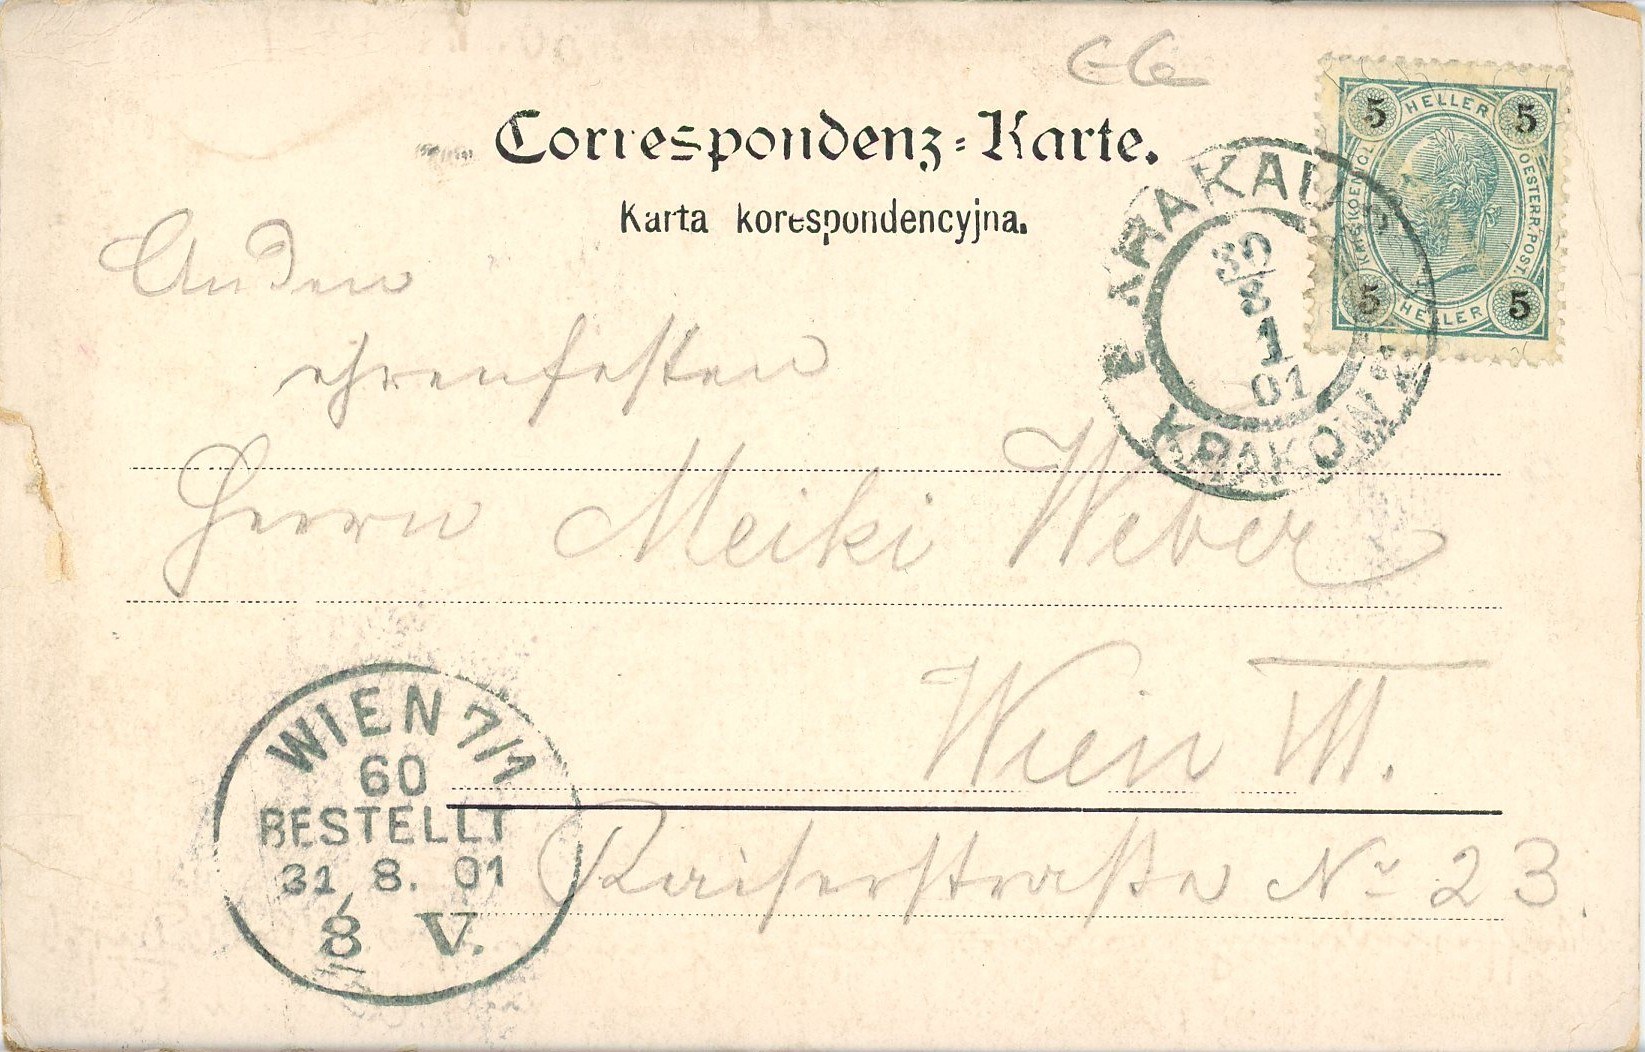 Correspondenz-Karte.
Karta korespondencyjna.
5 HELLER 5
KAIS. KOENIGL. OESTERR. POST.
5 HELLER 5
KRAKAU
30
8
1
01
KRAKÓW
An den
ehrenfesten
Herrn Meiki Weber
Wien VII.
Kaiserstraße Nr 23.
WIEN 7/1
60
BESTELLT
31 8. 01
8 V.